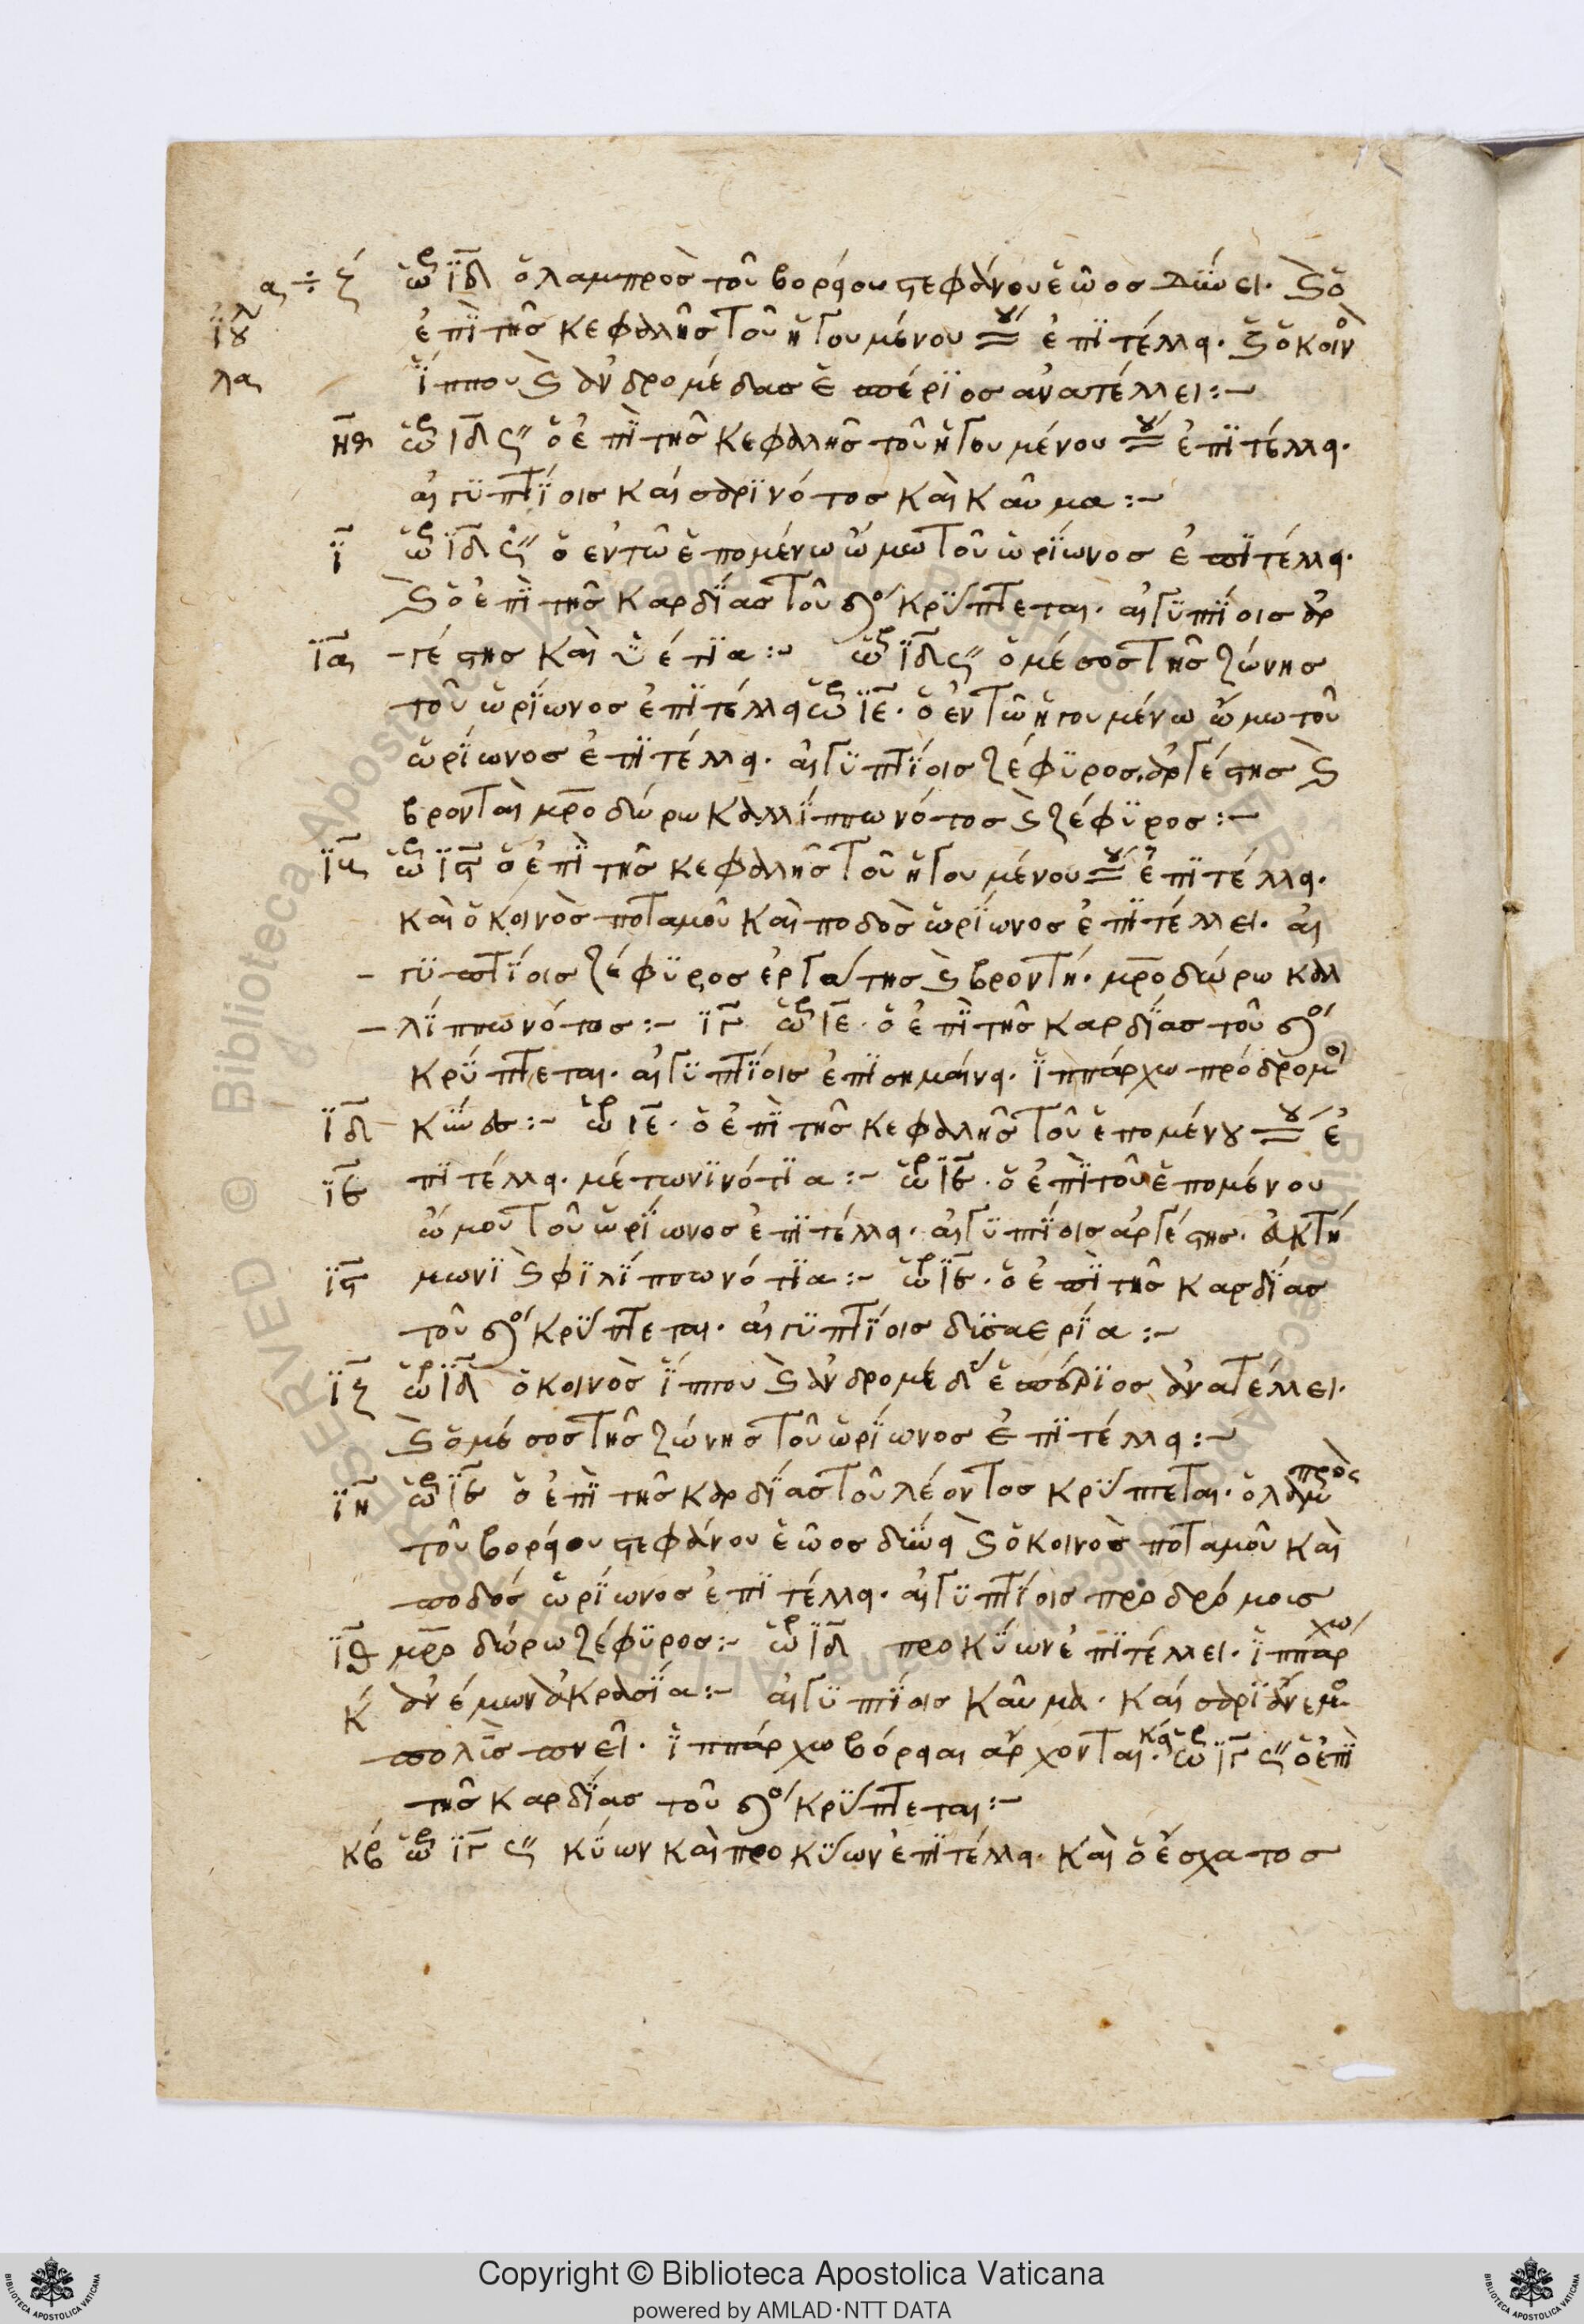 α ÷ ζ ὡρ ιδ ὁ λαμπρὸς τοῦ βορείου στεφάνου ἑῶος δύνει. καὶ ὁ
ιουλ ἐπὶ τῆς κεφαλῆς τοῦ ἡγουμένου ἐπιτέλλει. καὶ ὁ κοιν
λα ἵππου καὶ ἀνδρομέδας ἑσπέριος ἀνατέλλει :~
ηθ ὡρ ιδ ς" ὁ ἐπὶ τῆς κεφαλῆς τοῦ ἡγουμένου ἐπιτέλλει.
αἰγυπτίοις καὶσαρι νότος καὶ καῦμα :~
ι ὡρ ιδ ς" ὁ ἐν τῶ ἑπομένω ὤμω τοῦ ὠρίωνος ἐπιτέλλει.
καὶ ὁ ἐπὶ τῆς καρδίας τοῦ κρύπτεται. αἰγυπτίοις ἀρ
ια –γέστης καὶ ὑέτια :~ ὡρ ιδ ς" ὁ μέσος τῆς ζώνης
τοῦ ὠρίωνος ἐπιτέλλει ὡρ ιε. ὁ ἐν τῶ ἡγουμένω ὤμω τοῦ
ὠρίωνος ἐπιτέλλει. αἰγυπτίοις ζέφυρος. ἀργέστης καὶ
βρονταὶ μροδώρω καλίππω νότος καὶ ζέφυρος :~
ὡρ ις ὁ ἐπὶ τῆς κεφαλῆς τοῦ ἡγουμένου ἐπιτέλλει.
καὶ ὁ κοινὸς ποταμοῦ καὶ ποδὸς ὠρίωνος ἐπιτέλλει. αἰ
–γυπτίοις ζέφυρος ἐργάτης καὶ βροντή. μροδώρω καλ
–λίππω νότος :~ ιγ ὡρ ιε. ὁ ἐπὶ τῆς καρδίας τοῦ
κρύπτεται. αἰγυπτίοις ἐπισημαίνει. ἱππάρχω πρόδρομοι
ιδ :~ ὡρ ιε. ὁ ἐπὶ τῆς κεφαλῆς τοῦ ἑπομένου ἐ
ιε πιτέλλει. μέτωνι νότια :~ ὡρ ιε. ὁ ἐπὶ τοῦ ἑπομένου
ὤμου τοῦ ὠρίωνος ἐπιτέλλει. αἰγυπτίοις ἀργέστης. ἀκτή
ις μωνι καὶ φιλίππω νότια :~ ὡρ ιε. ὁ ἐπὶ τῆς καρδίας
τοῦ κρύπτεται. αἰγυπτίοις δισαερία :~
ιζ ὡρ ιδ ὁ κοινὸς ἵππου καὶ ἀνδρομέδας ἑσπέριος ἀνατέλλει.
καὶ ὁ μέσος τῆς ζώνης τοῦ ὠρίωνος ἐπιτέλλει :~
ιη ὡρ ιε ὁ ἐπὶ τῆς καρδίας τοῦ λέοντος κρύπτεται. ὁ λαμπρὸς
τοῦ βορείου στεφάνου ἑῶος δύνει καὶ ὁ κοινὸς ποταμοῦ καὶ
ποδός ὠρίωνος ἐπιτέλλει. αἰγυπτίοις προδρόμοις
ιθ μροδώρω ζέφυρος :~ ὡρ ιδ προκύων ἐπιτέλλει. ἱππάρχω
κ ἀνέμων ἀκρασία :~ αἰγυπτίοις καῦμα. καίσαρι ἄνεμο
πολὶς πνεῖ. ἱππάρχω βόρειαι ἄρχονται. κα ὡρ ιγ ς" ὁ ἐπὶ
τῆς καρδίας τοῦ κρύπτεται :~
κβ ὡρ ιγ ς" κύων καὶ προκύων ἐπιτέλλει. καὶ ὁ ἔσχατος
Copyright © Biblioteca Apostolica Vaticana
powered by AMLAD·NTT DATA